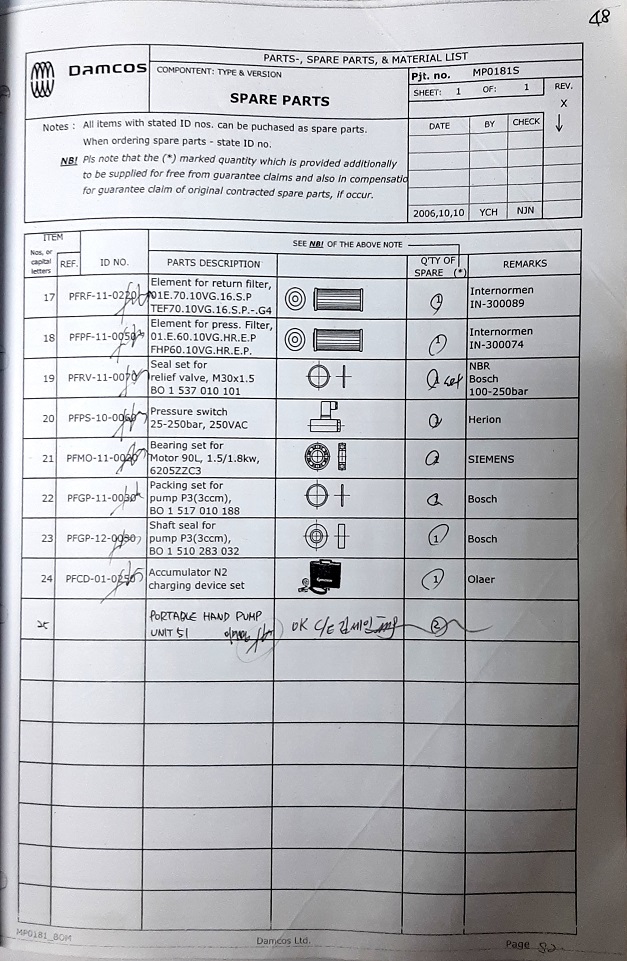 48
Damcos
PARTS-, SPARE PARTS, & MATERIAL LIST
COMPONTENT: TYPE & VERSION
SPARE PARTS
Pjt. no. MP0181S
SHEET: 1 OF: 1
REV.
X
DATE BY CHECK
2006,10,10 YCH NJN
Notes : All items with stated ID nos. can be puchased as spare parts.
When ordering spare parts - state ID no.
NB! Pls note that the (*) marked quantity which is provided additionally
to be supplied for free from guarantee claims and also in compensatio
for guarantee claim of original contracted spare parts, if occur.
ITEM
Nos, or capital letters
REF.
ID NO.
PARTS DESCRIPTION
SEE NB! OF THE ABOVE NOTE
Q'TY OF SPARE (*)
REMARKS
17 PFRF-11-0220 Element for return filter, 1 Internormen
01E.70.10VG.16.S.P IN-300089
TEF70.10VG.16.S.P.-.G4
18 PFPF-11-0050 Element for press. Filter, 1 Internormen
01.E.60.10VG.HR.E.P. IN-300074
FHP60.10VG.HR.E.P.
19 PFRV-11-0070 Seal set for set NBR
relief valve, M30x1.5 Bosch
BO 1 537 010 101 100-250bar
20 PFPS-10-0060 Pressure switch Herion
25-250bar, 250VAC
21 PFMO-11-0020 Bearing set for SIEMENS
Motor 90L, 1.5/1.8kw,
6205ZZC3
22 PFGP-11-0030 Packing set for Bosch
pump P3(3ccm),
BO 1 517 010 188
23 PFGP-12-0030 Shaft seal for 1 Bosch
pump P3(3ccm),
BO 1 510 283 032
24 PFCD-01-0250 Accumulator N2 1 Olaer
charging device set
25 PORTABLE HAND PUMP OK C/E 2
UNIT 51
MP0181_BOM
Damcos Ltd.
Page 52